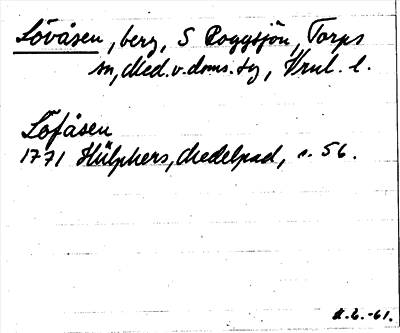 Lövåsen, berg, S Roggsjön, Torps
sn, Med. v. doms. tg, Vrnl. l.
Löfåsen
1771 Hülphers, Medelpad, s. 56.
-61.